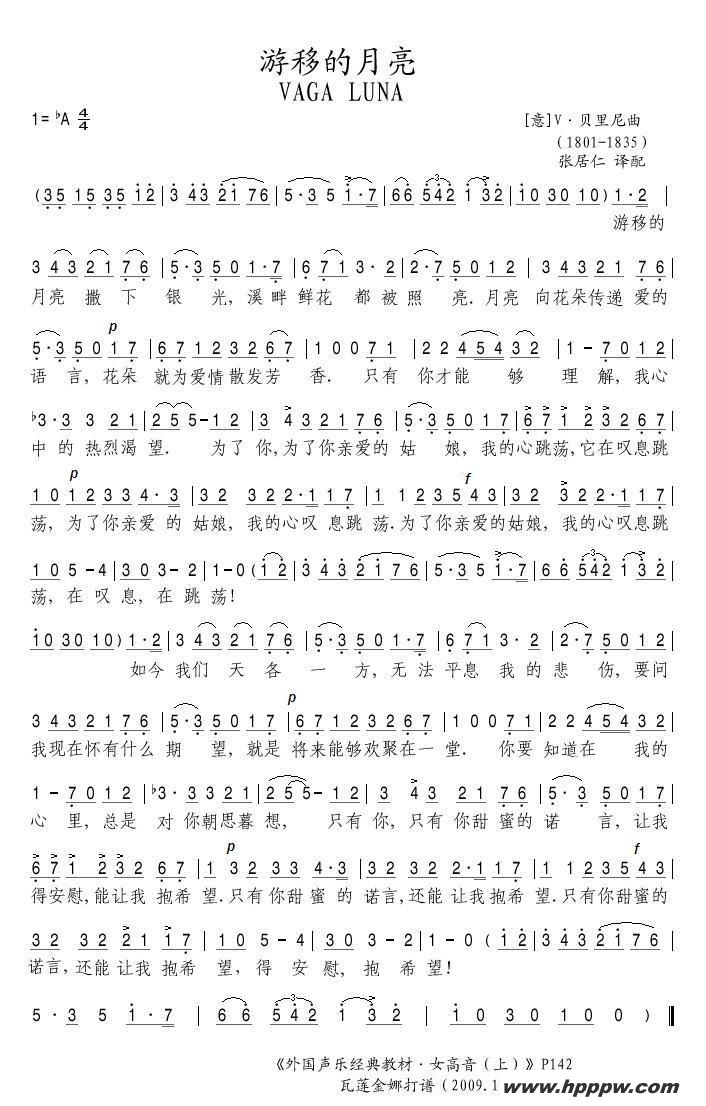 游移的月亮
VAGA LUNA
1=♭A 4/4
[意]V·贝里尼曲
(1801-1835)
张居仁 译配
(35 15 35 12 | 3 43 21 76 | 5·3 5 1·7 | 66 542 1 32 | 10 30 10) 1·2 |
游移的
3 43 21 76 | 5·3 501·7 | 671 3·2 | 2·75012 | 34321 76 |
月亮 撒 下 银 光,溪畔 鲜花 都 被照 亮.月亮 向花朵传递 爱的
5·35017 | 671 23267 | 10071 | 22 454 32 | 1-7012 |
p
语 言,花朵 就为爱情散发芳 香.只有 你才能 够 理 解,我心
♭3·3 3 21 | 255-12 | 3 432176 | 5·35017 | 671 23267 |
中的 热烈渴 望. 为了 你,为了你亲爱的 姑 娘,我的心跳荡,它在叹息跳
p
f
1012334·3 | 32 32 2·117 | 1 123543 | 32 32 2117 |
荡,为了你亲爱 的 姑娘,我的心叹 息跳 荡.为了你亲爱的姑娘,我的心叹息跳
105-4 | 303-2 | 1-0(12 | 3432176 | 5·35 1·7 | 66 542 1 32 |
荡,在 叹 息,在 跳 荡!
10 30 10) 1·2 | 3 432176 | 5·3501·7 | 671 3·2 | 2·75012 |
如今 我们 天 各 一 方,无法 平息 我 的 悲 伤,要问
p
34321 76 | 5·35017 | 671 23267 | 10071 | 22 454 32 |
我现在怀有什么 期 望,就是 将来能够欢聚在一 堂. 你要 知道在 我的
1-7012 | ♭3·33321 | 255-12 | 3 43 2176 | 5·35017 |
心 里,总是 对 你朝思暮 想, 只有 你,只有 你甜蜜的 诺 言,让我
p
f
671 23267 | 1 32 33 4·3 | 32 32 2·117 | 1 123543 |
得安慰,能让我 抱希 望.只有你甜蜜 的 诺言,还能 让我抱希 望.只有你甜蜜的
32 32 21 17 | 105-4 | 303-2 | 1-0(12 | 3432176 |
诺言,还能 让我抱希 望,得 安 慰, 抱 希 望!
5·35 1·7 | 66 542 1 32 | 10 30 10 0) ‖
《外国声乐经典教材·女高音(上)》P142
瓦莲金娜打谱(2009.1
www.hpppw.com